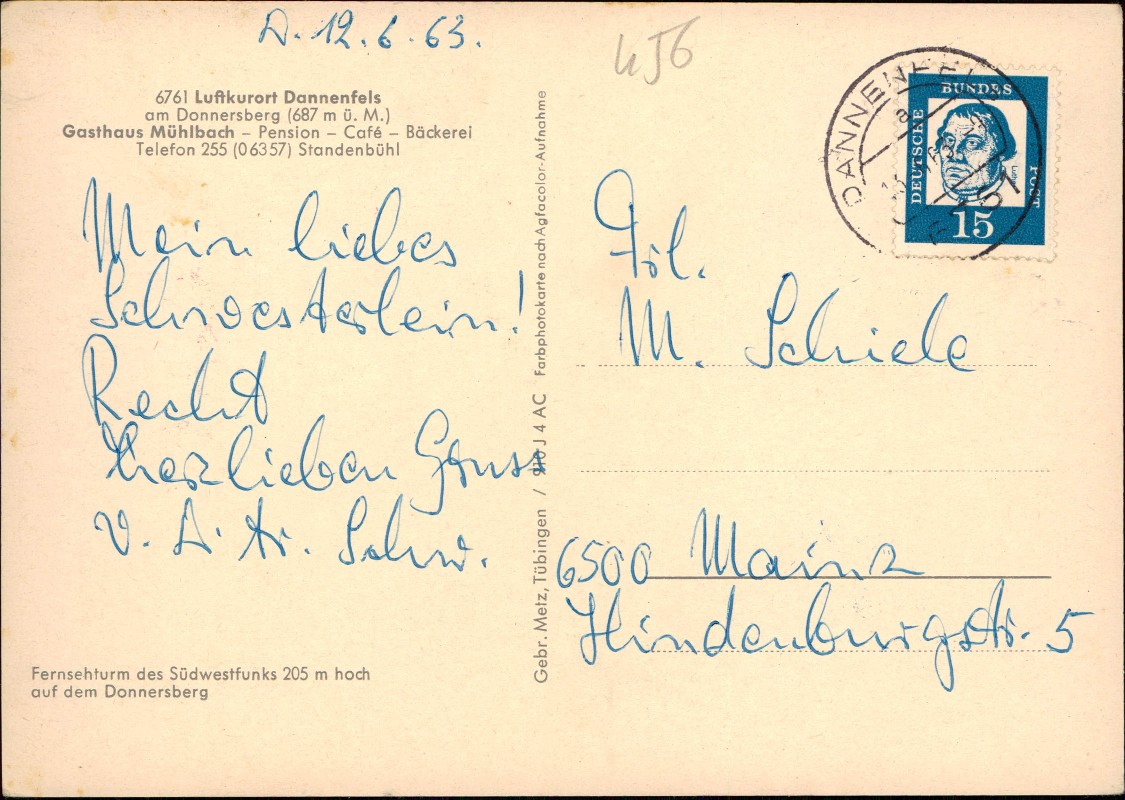 D. 12.6.63.
6761 Luftkurort Dannenfels
am Donnersberg (687 m ü. M.)
Gasthaus Mühlbach – Pension – Café – Bäckerei
Telefon 255 (06357) Standenbühl
Mein liebes
Schwesterlein!
Recht
herzlieben Gruss
v. D. tr. Schw.
Fernsehturm des Südwestfunks 205 m hoch
auf dem Donnersberg
Gebr. Metz, Tübingen / 910 J 4 AC Farbphotokarte nach Agfacolor-Aufnahme
456
DANNENFELS
a
DEUTSCHE
BUNDES
POST
15
Frl.
M. Schiele
6500 Mainz
Hindenburgstr. 5